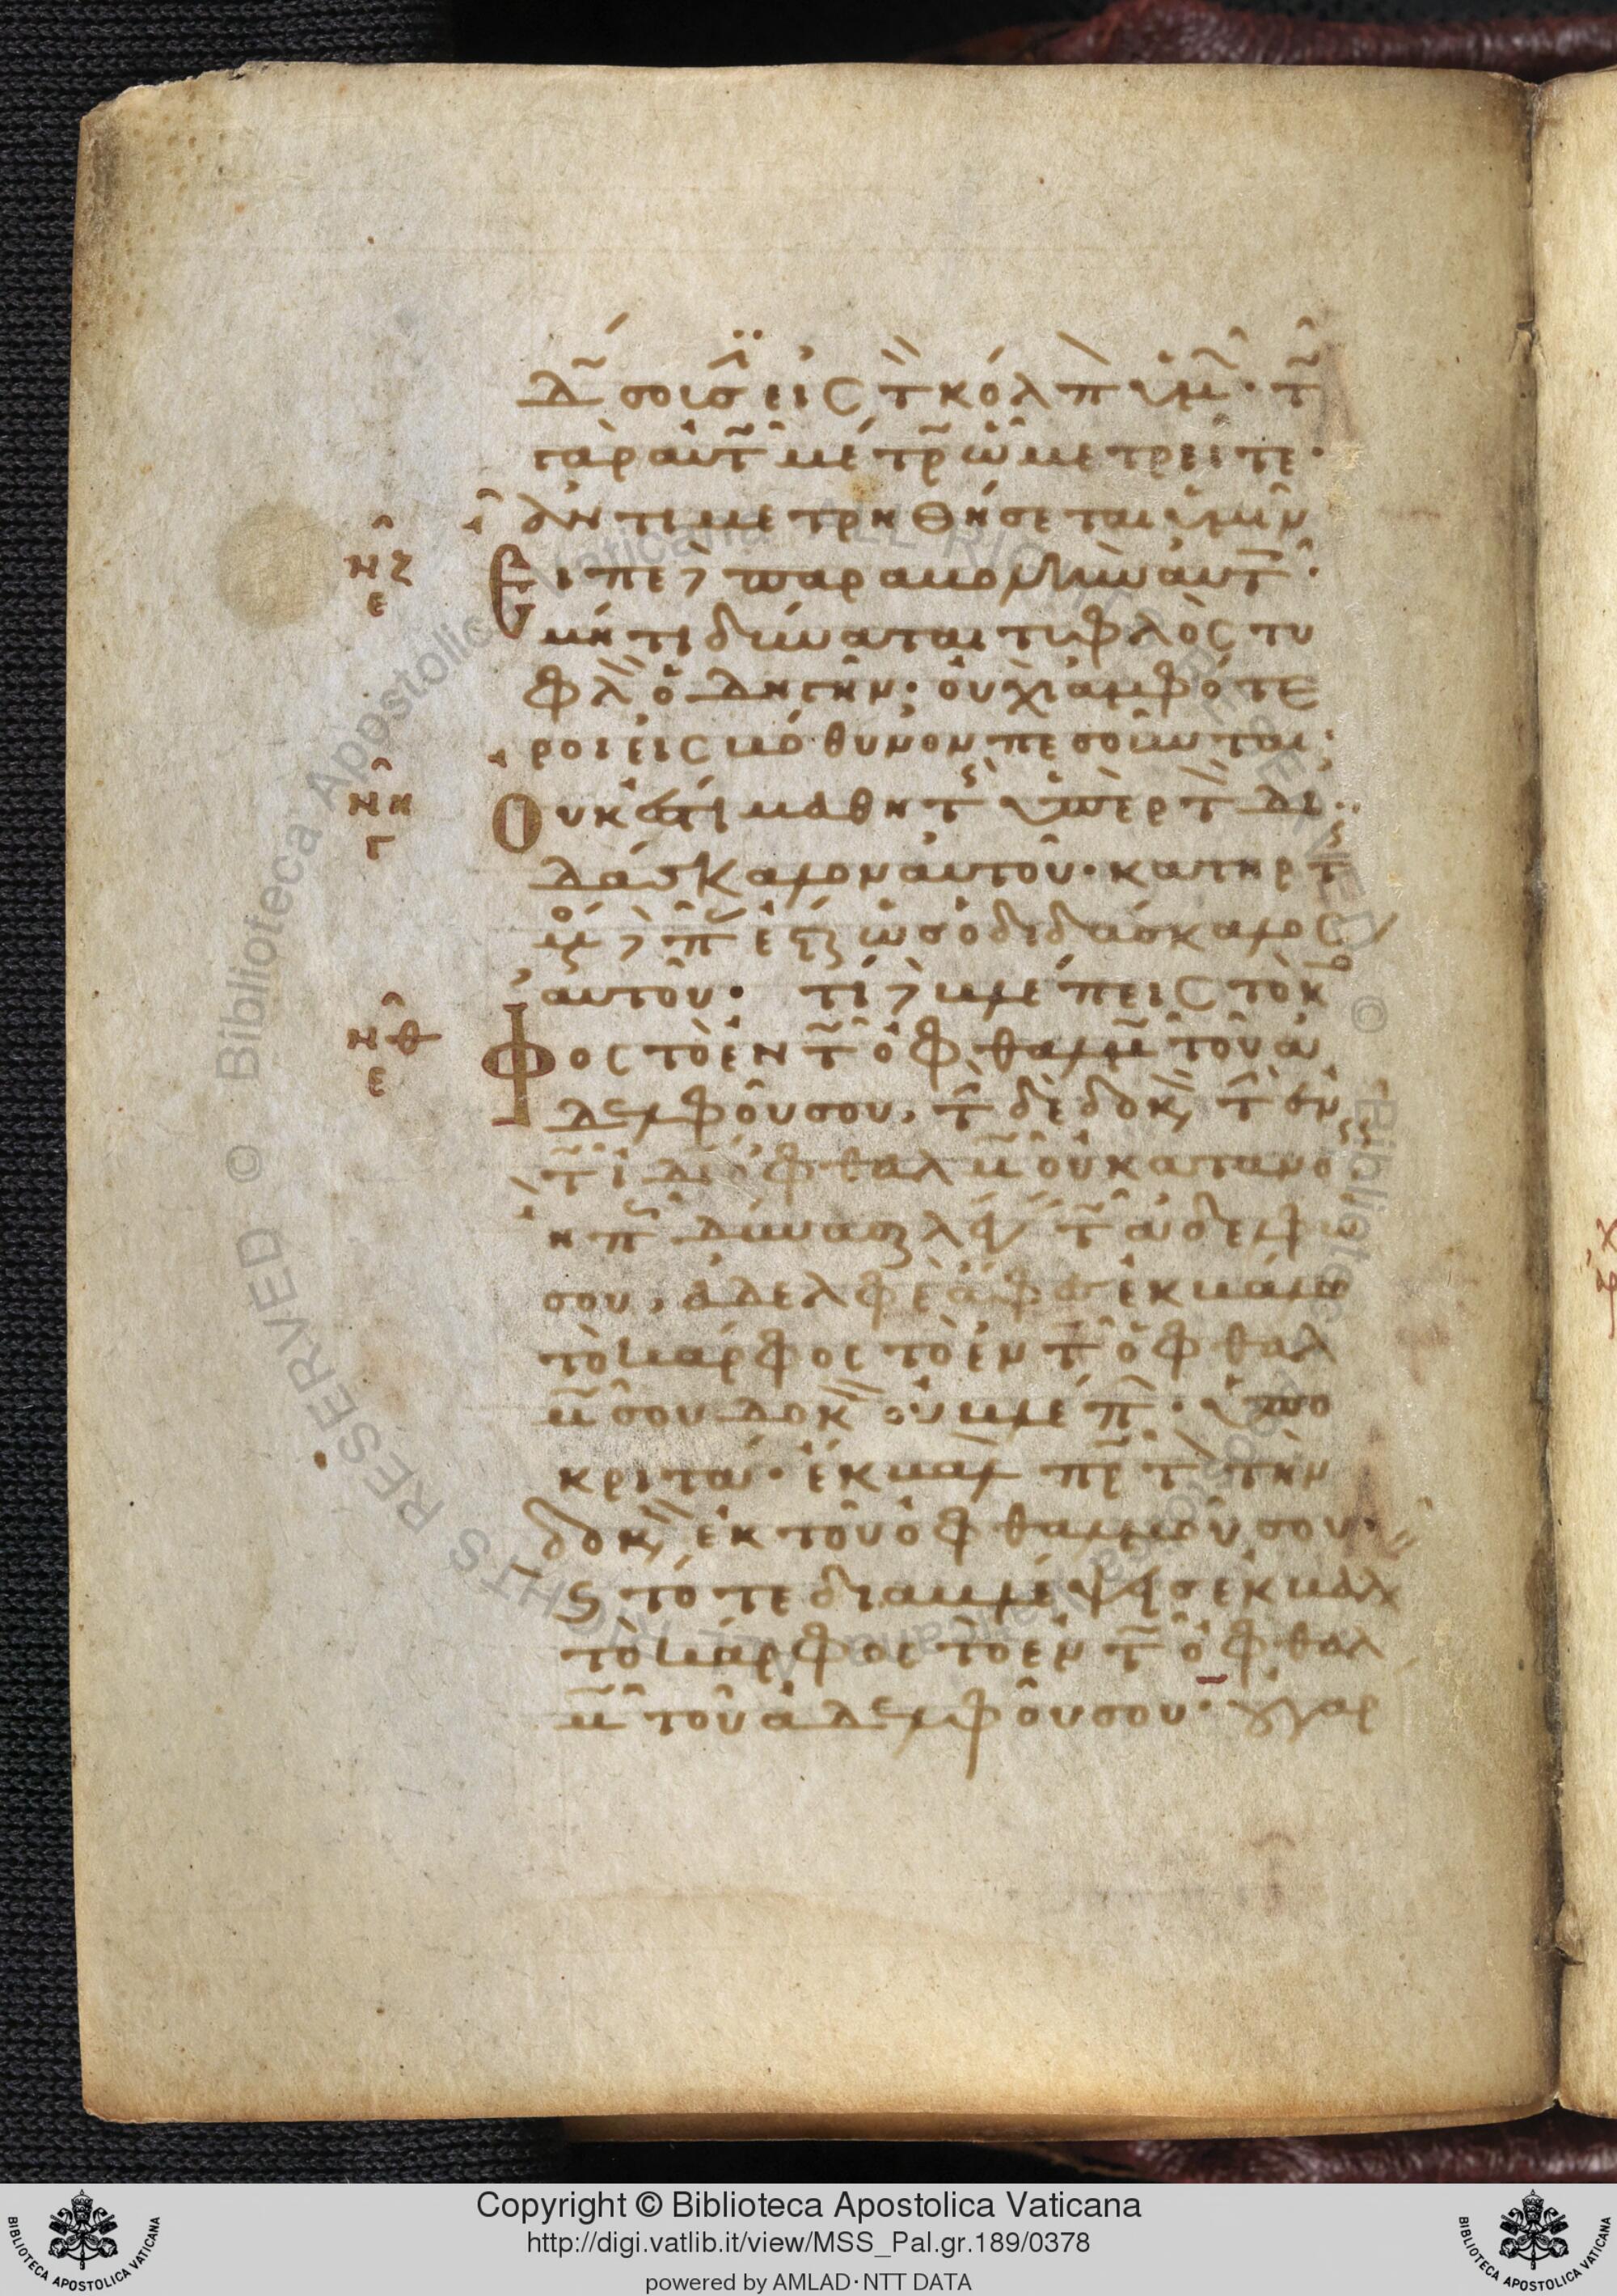 δῶσουσιν εἰς τὸν κόλπον ὑμῶν· τῷ
γὰρ αὐτῷ μέτρῳ ᾧ μετρεῖτε·
ἀντιμετρηθήσεται ὑμῖν
νζ
ε
Εἶπε δὲ παραβολὴν αὐτοῖς·
μήτι δύναται τυφλὸς τυ
φλὸν ὁδηγεῖν· οὐχὶ ἀμφότε
ροι εἰς βόθυνον πεσοῦνται·
νη
γ
Οὐκ ἔστι μαθητὴς ὑπὲρ τὸν δι
δάσκαλον αὐτοῦ· κατηρτισ
μένος δὲ πᾶς ἔσται ὡς ὁ διδάσκαλος
αὐτοῦ· τί δὲ βλέπεις τὸ κάρ
νθ
ε
φος τὸ ἐν τῷ ὀφθαλμῷ τοῦ ἀ
δελφοῦ σου, τὴν δὲ δοκὸν τὴν ἐν
τῷ ἰδίῳ ὀφθαλμῷ οὐ κατανοεῖς
ἢ πῶς δύνασαι λέγειν τῷ ἀδελφῷ
σου, ἀδελφὲ ἄφες ἐκβάλω
τὸ κάρφος τὸ ἐν τῷ ὀφθαλ
μῷ σου δοκὸν οὐ βλέπων· ὑπο
κριτά· ἔκβαλε πρῶτον τὴν
δοκὸν ἐκ τοῦ ὀφθαλμοῦ σου·
καὶ τότε διαβλέψεις ἐκβαλ
τὸ κάρφος τὸ ἐν τῷ ὀφθαλ
μῷ τοῦ ἀδελφοῦ σου· οὐ γάρ
Copyright © Biblioteca Apostolica Vaticana
http://digi.vatlib.it/view/MSS_Pal.gr.189/0378
powered by AMLAD·NTT DATA
BIBLIOTECA APOSTOLICA VATICANA
BIBLIOTECA APOSTOLICA VATICANA